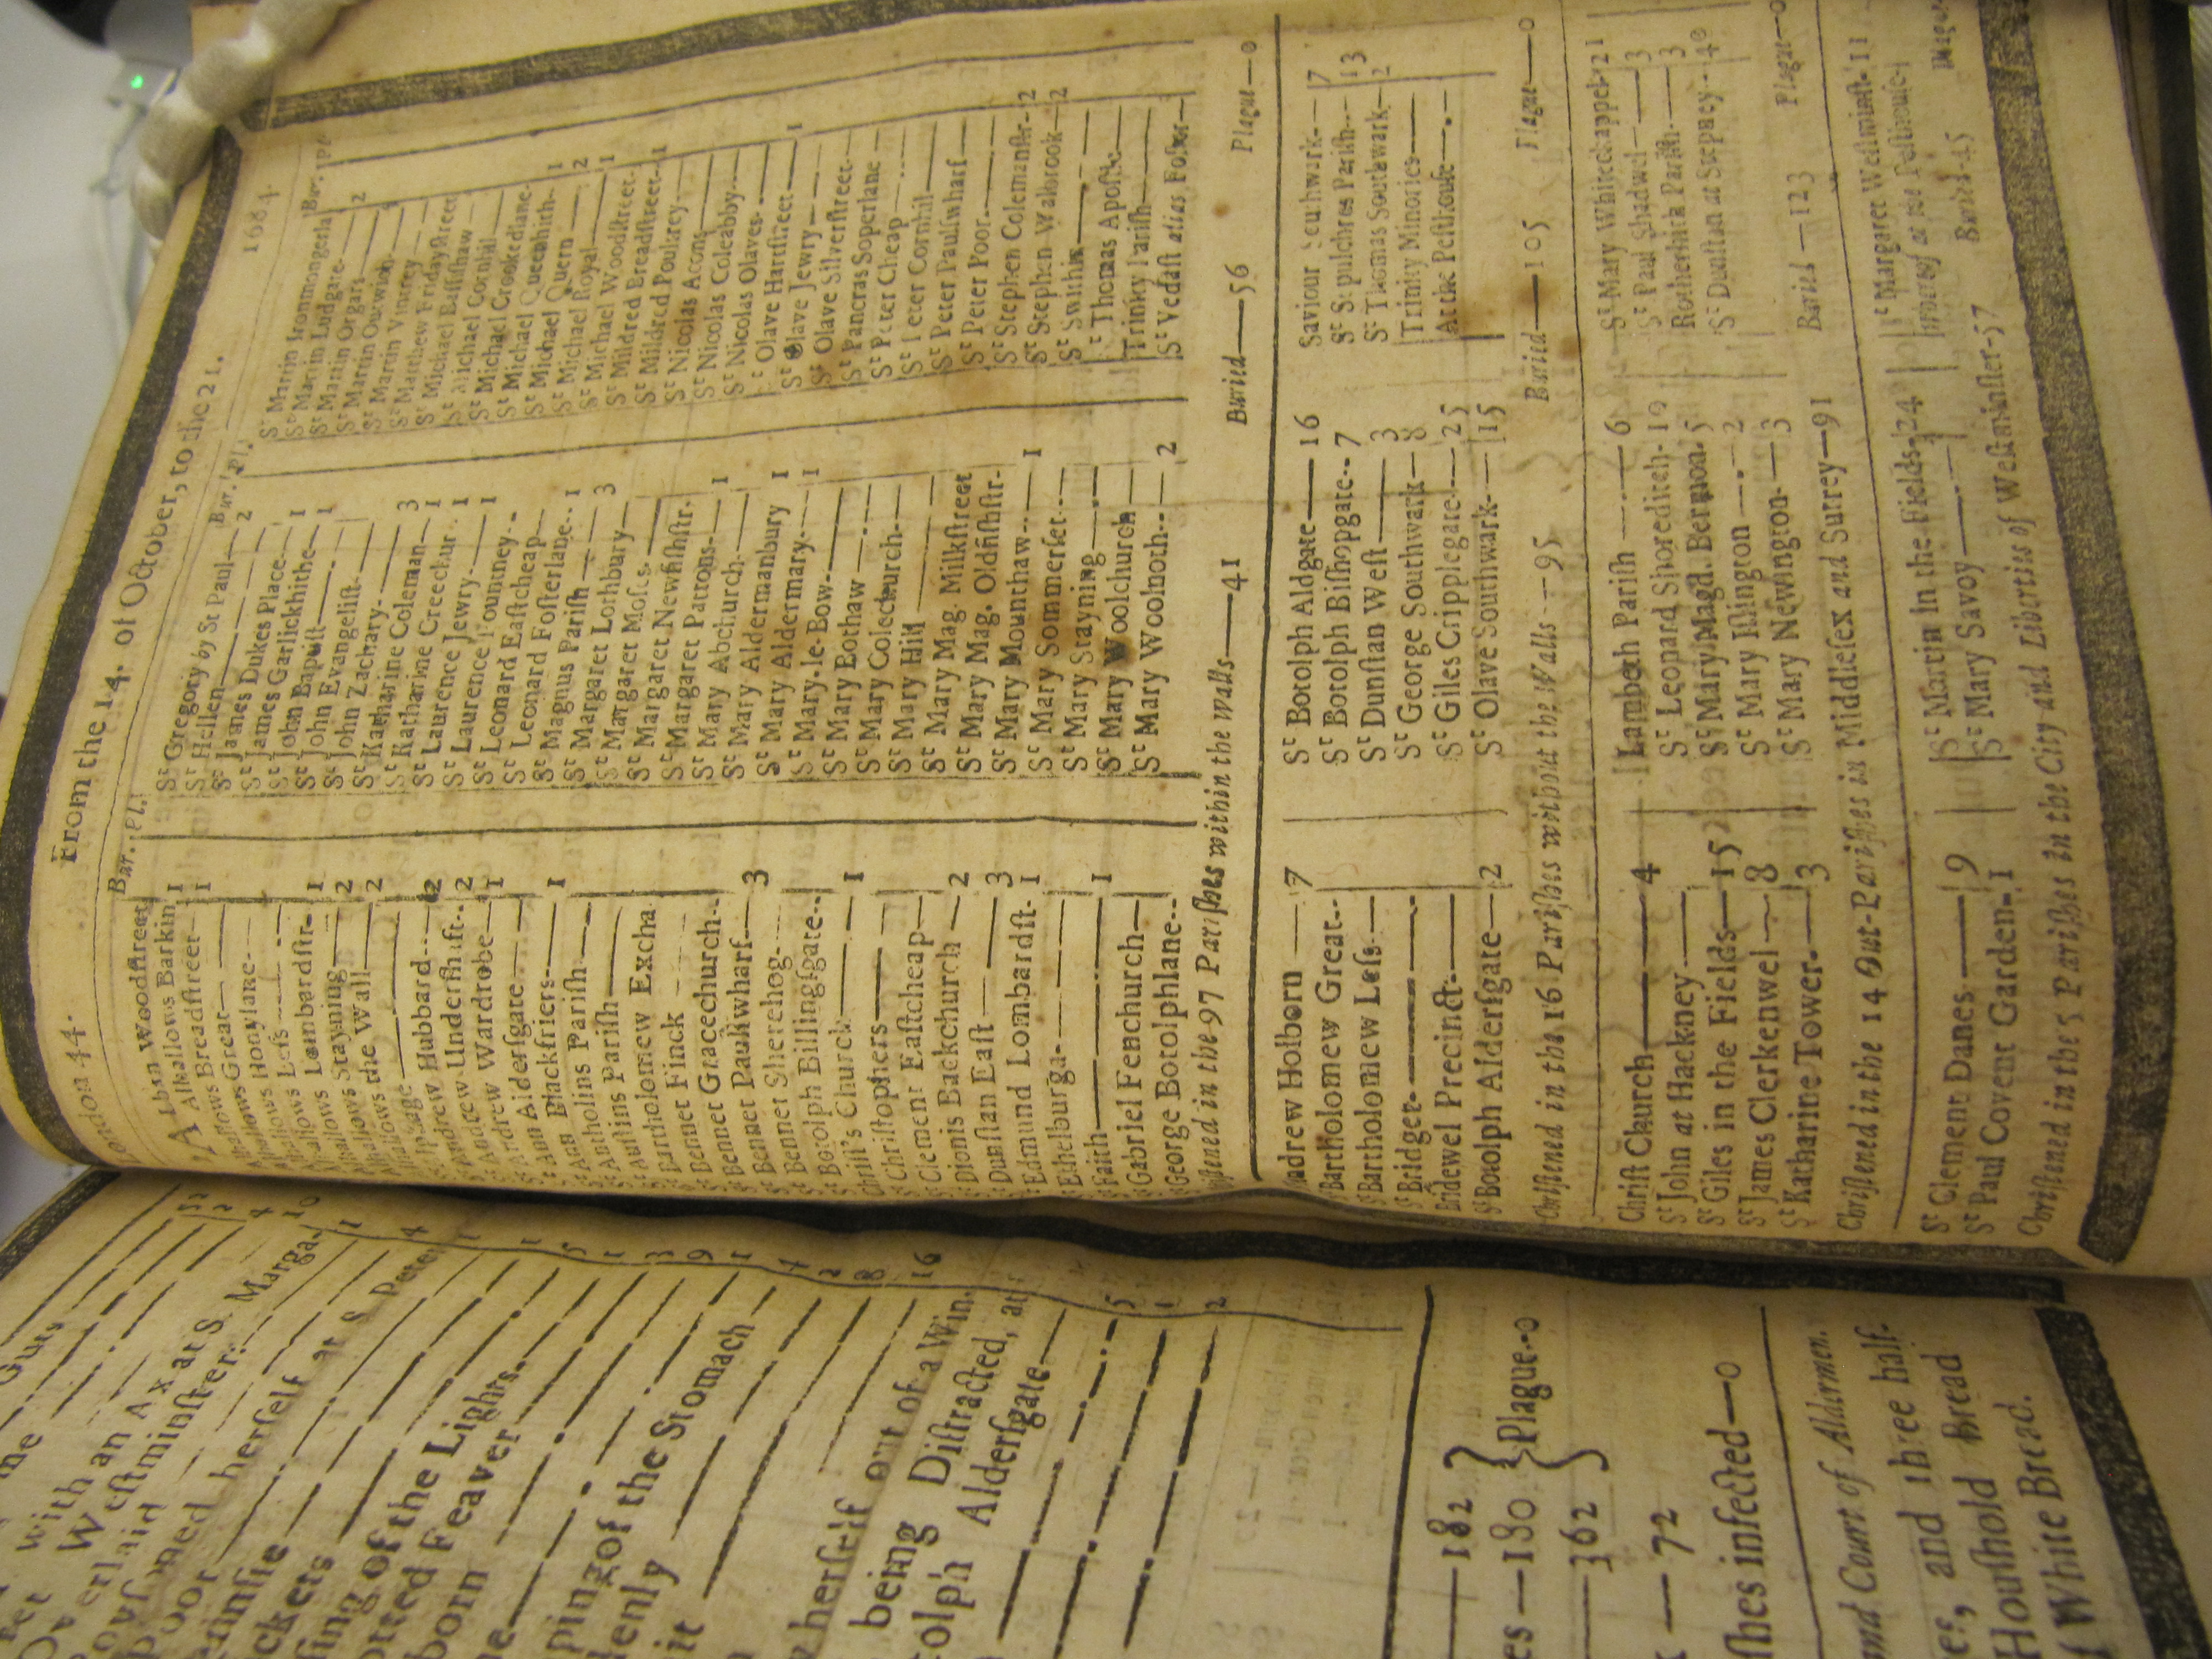 with an Ax at S. Marga-
Westminster.
Overlaid
herself at S Peter
of the Lights
Feaver
of the Stomach
herself out of a Win-
being Distracted, at
Aldersgate
182
180
362
Plague--0
72
shes infected—0
and Court of Aldermen.
and three half-
Houshold Bread
White Bread.
London 44.
From the 14. of October, to the 21.
1684
Bur. Pl.
Alban Woodstreet 1
Alhallows Barkin 1
Alhallows Breadstreet
Alhallows Great
Alhallows Honylane
Alhallows Less
Lombardstr- 1
Alhallows Stayning 2
the Wall 2
Andrew Hubbard 2
Andrew Undershaft 2
St Andrew Wardrobe 1
St Ann Aldersgate
St Ann Blackfriers 1
St Antholins Parish
St Austins Parish
Bartholomew Excha
Bennet Finck
St Bennet Gracechurch
St Bennet Paulswharf 3
St Bennet Sherehog
St Botolph Billingsgate
Christ's Church 1
St Christophers
St Clement Eastcheap 2
St Dionis Backchurch 2
St Dunstan East 3
St Edmund Lombardst. 1
St Ethelburga
St Faith 1
St Gabriel Fenchurch
St George Botolphlane
Bur. Pl.
St Gregory by St Paul 2
St Hellen
St James Dukes Place 1
St James Garlickhithe 1
St John Baptist
St John Evangelist
St John Zachary
St Katharine Coleman 3
St Katharine Creechur. 1
St Laurence Jewry 1
St Laurence Pountney 1
St Leonard Eastcheap
St Leonard Fosterlane 1
St Magnus Parish 3
St Margaret Lothbury
St Margaret Moses
St Margaret Newfishstr.
St Margaret Patrons 1
St Mary Abchurch
St Mary Aldermanbury 1
St Mary Aldermary 1
St Mary-le-Bow
St Mary Bothaw
St Mary Colechurch
St Mary Hill
St Mary Mag. Milkstreet
St Mary Mag. Oldfishstr-
St Mary Mounthaw 1
St Mary Sommerset
St Mary Stayning
St Mary Woolchurch
St Mary Woolnoth 2
Bur.
St Martin Ironmongerla
St Martin Ludgate 2
St Martin Orgars
St Martin Outwich
St Martin Vintrey
St Matthew Fridaystreet
St Michael Bassishaw
St Michael Cornhil 1
St Michael Crookedlane 2
St Michael Queenhith 1
St Michael Quern
St Michael Royal
St Michael Woodstreet
St Mildred Breadstreet 1
St Mildred Poultrey
St Nicolas Acons
St Nicolas Coleabby
St Nicolas Olaves
St Olave Hartstreet 1
St Olave Jewry
St Olave Silverstreet
St Pancras Soperlane
St Peter Cheap
St Peter Cornhil
St Peter Paulswharf
St Peter Poor
St Stephen Colemanstr- 2
St Stephen Walbrook 2
St Swithin
St Thomas Apostle
Trinity Parish
St Vedast alias Foster
Christened in the 97 Parishes within the walls—41 Buried—56 Plague—0
Andrew Holborn 7
St Bartholomew Great
St Bartholomew Less
St Bridget
Bridewel Precinct
St Botolph Aldersgate 2
St Botolph Aldgate 16
St Botolph Bishopgate 7
St Dunstan West 3
St George Southwark 8
St Giles Cripplegate 25
St Olave Southwark 15
Saviour Southwark 17
St Sepulchres Parish 13
St Thomas Southwark 2
Trinity Minories
At the Pesthouse
Christened in the 16 Parishes without the Walls—95 Buried—105 Plague—0
Christ Church 4
St John at Hackney
St Giles in the Fields 15
St James Clerkenwel 8
St Katharine Tower 3
Lambeth Parish 6
St Leonard Shoreditch 19
St Mary Magd. Bermon. 5
St Mary Islington 2
St Mary Newington 3
St Mary Whitechappel 21
St Paul Shadwel 3
Rotherhith Parish 3
St Dunstan at Stepney 40
Christened in the 14 Out-Parishes in Middlesex and Surrey—91 Buried—123 Plague—0
St Clement Danes 9
St Paul Covent Garden 1
St Martin in the Fields 24
St Mary Savoy
St Margaret Westminst. 11
whereof at the Pesthouse
Christened in the 5 Parishes in the City and Liberties of Westminster-37 Buried-45 Plague